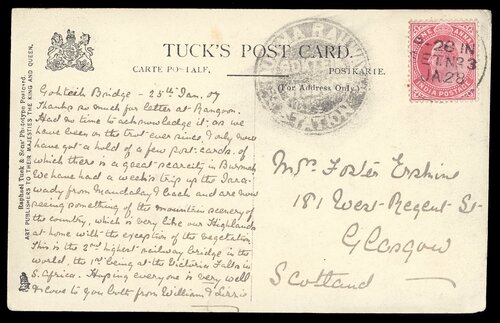 TUCK'S POST CARD.
CARTE POSTALE.
POSTKARTE.
(For Address Only.)
Raphael Tuck & Sons' Photogravure Postcard.
ART PUBLISHERS TO THEIR MAJESTIES THE KING AND QUEEN.
STATION
ONE ANNA
INDIA POSTAGE
28 IN
ET.NO3
JA28
Gokteik Bridge - 25th Jan. 07
Thanks so much for letter at Rangoon.
Had no time to acknowledge it as we
have been on the trot ever since & only now
have got a hold of a few post-cards, of
which there is a great scarcity in Burmah
We have had a week's trip up the Irra-
wady from Mandalay & back and are now
seeing something of the mountain scenery of
the country, which is very like our Highlands
at home with the exception of the vegetation.
This is the 2nd highest railway bridge in the
world, the 1st being at the Victoria Falls in
S. Africa. Hoping everyone is very well
& love to you both from William & Lizzie
Mrs. Foster Erskine
181 West-Regent St-
Glasgow
Scotland